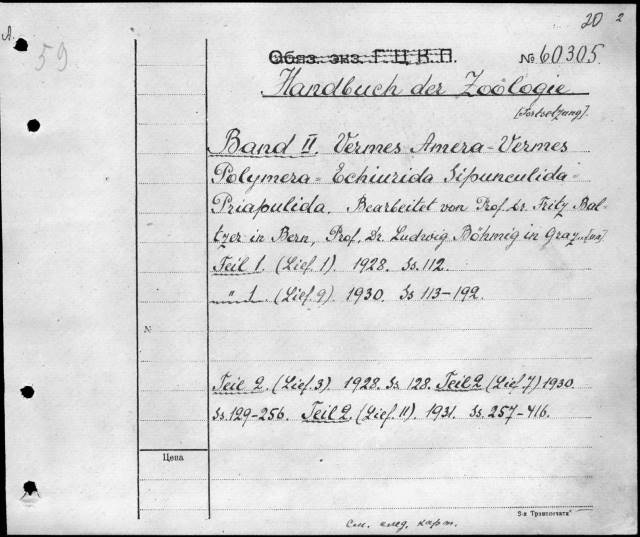 20 2
A.
59
Обяз. экз. Г.Ц.К.П. № 60305
Handbuch der Zoölogie
[Fortsetzung].
Band II. Vermes Amera-Vermes
Polymera=Echiurida Sipunculida=
Priapulida. Bearbeitet von Prof. Dr. Fritz Bal-
tzer in Bern, Prof. Dr. Ludwig Böhmig in Graz..
Teil 1. (Lief. 1). 1928. Ss. 112.
„ 1. (Lief. 9). 1930. Ss 113–192.
N
Teil 2. (Lief. 3). 1928. Ss. 128. Teil 2 (Lief. 7) 1930.
Ss. 129–256. Teil 2. (Lief. 11). 1931. Ss. 257–416.
Цена
3-я Транпечать"
См. след. карт.